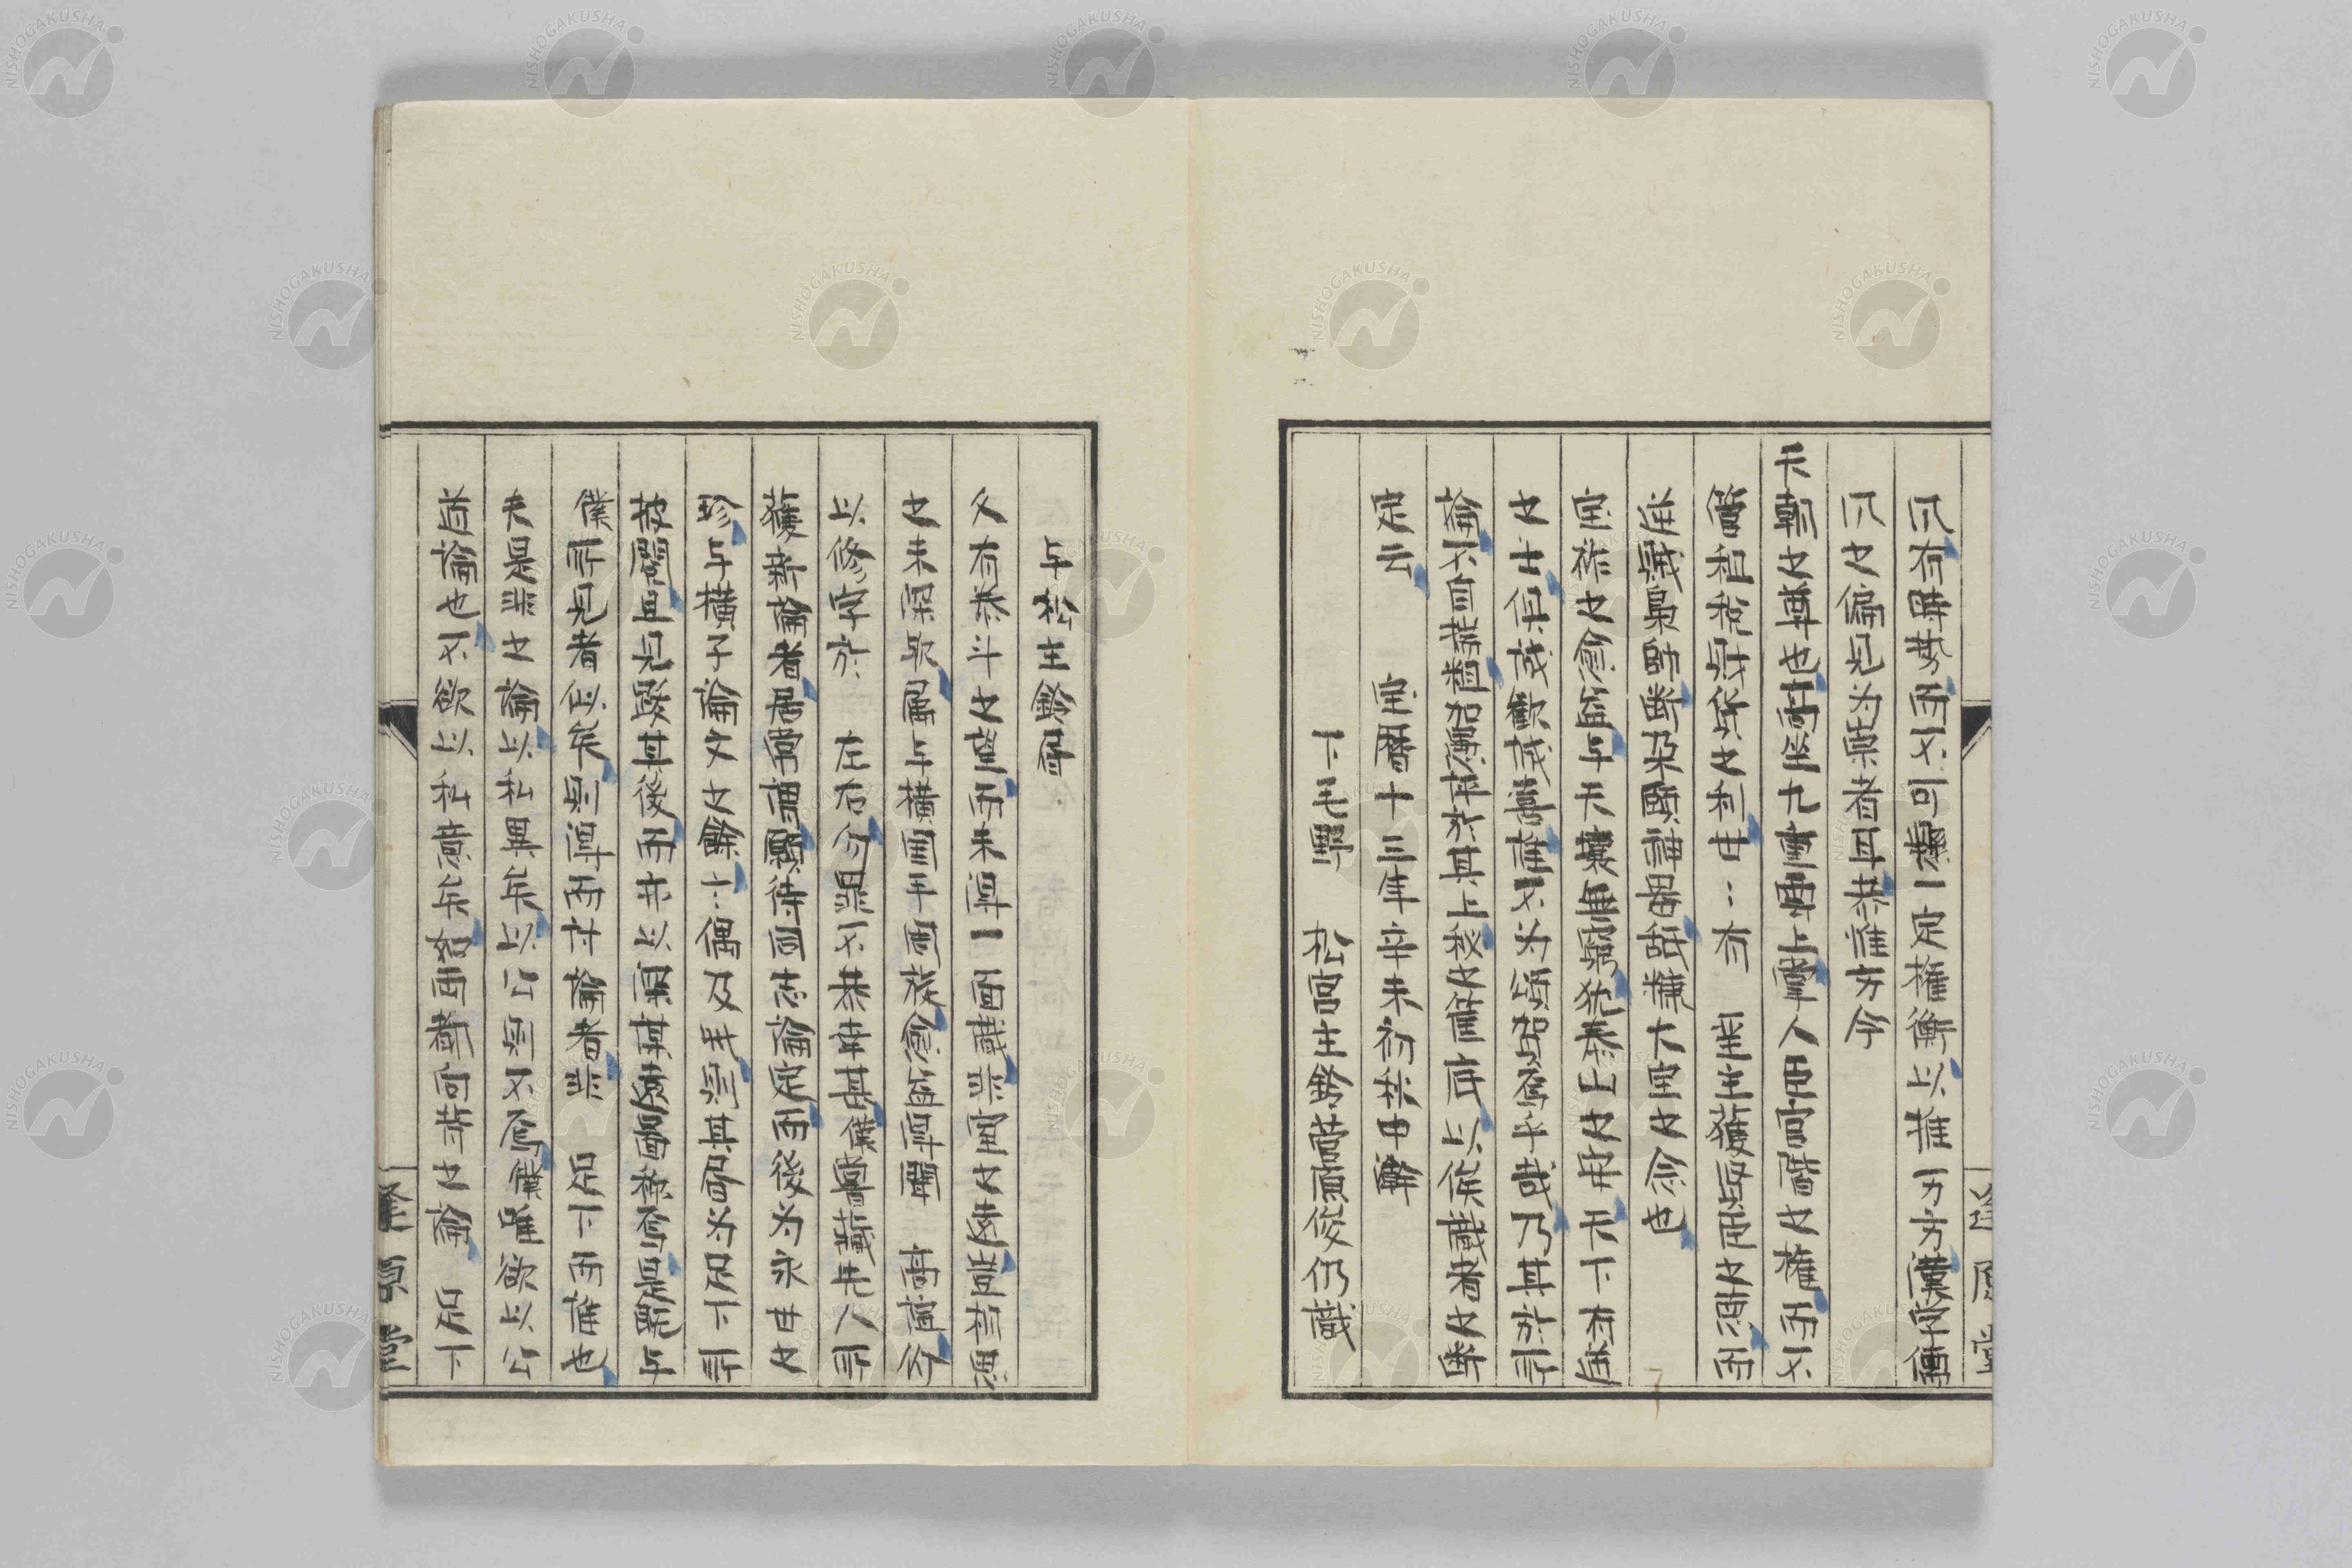 爪有時勢而不可懸一定権衡以推万方漢字傳
爪之偏見为禀者耳恭惟方今
天朝之尊也高坐九重爵上掌人臣官階之権而不
管租税財貨之利世〻有 聖主獲賢臣之惠而
逆賊梟帥断朶頤謀畧舐糠大宝之念也
宝祚之愈益与天壤無窮犹泰山之安天下有道
之士俱誠歓誠喜誰不为頌賀焉乎哉乃其於所
論不自揣粗加潤弁於其上秘之筐底以俟識者之断
定云 宝暦十三年辛未初秋日瀚
下毛野 松宮主鈴菅原俊仍識
与松主鈴書
久有泰斗之望而未得一面識非室之遠豈有思
之未深歟屬与横田平周旋愈益得聞 高誼仍
以修字於 左右勿罪不恭幸甚僕嘗藏先人所
獲新論者居常謂願待同志論定而後为永世之
珍与横子論文之餘〻偶及我則其書为足下所
披閲且見跋其後而亦以深其遠啚称奇是既与
僕所見者似矣則得而討論者非 足下而誰也
夫是非之論以私異矣以公則不焉僕唯欲以公
道論也不欲以私意矣如西都向背之論 足下
逢原堂